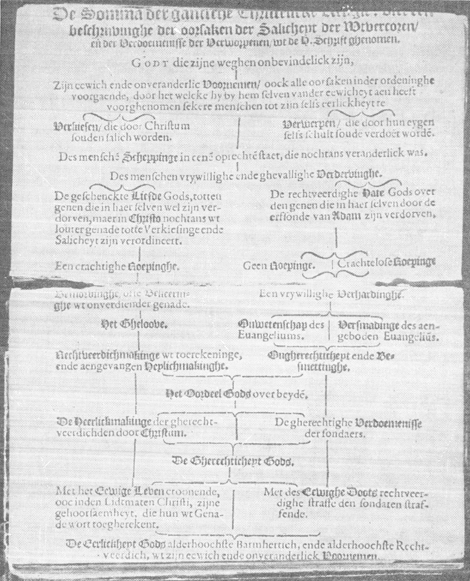 De Somma der gantsche Christelicke
beschrivinghe der oorsaken der Salicheyt der Wtvercoren/
en der Verdoemenisse der Verworpenen, wt de H. Schrift ghenomen.
GODT die zijne weghen onbevindelick zijn,
Zijn eewich ende onveranderlic Voornemen/ oock alle oorsaken inder ordeninghe
voorgaende, door het welcke hy by hem selven vander eewicheyt aen heeft
voorghenomen sekere menschen tot zijn selfs eerlickheyt te
Verkiesen, die door Christum
souden salich worden.
Verwerpen/ die door hun eygen
selfs schult soude verdoēt wordē.
Des menschē Scheppinge in eenē oprechtē staet, die nochtans veranderlick was.
Des menschen vrywillighe ende ghevallighe Verdervinghe.
De gheschenckte Liefde Gods, totten
genen die in haer selven wel zijn ver-
dorven, maer in Christo nochtans wt
louter genade totte Verkiesinge ende
Salicheyt zijn verordineert.
De rechtveerdighe Hate Gods over
den genen die in haer selven door de
erfsonde van Adam zijn verdorven.
Een crachtighe Roepinghe.
Geen Roepinge.
Crachtelose Roepinge
ofte Bekeerin-
ghe wt onverdiender genade.
Een vrywillighe Verhardinghe.
Het Gheloove.
Onwetenschap des
Euangeliums.
Versmadinge des aen-
geboden Euangeliūs.
Rechtveerdichmakinge wt toerekeninge,
ende aengevangen Heylichmakinghe.
Ongherechticheyt ende Be-
smettinghe.
Het Oordeel Gods over beydē.
De Heerlickmakinge der gherecht-
veerdichden door Christum.
De gherechtighe Verdoemenisse
der sondaers.
De Gherechticheyt Gods.
Met het Eewige Leven croonende,
ooc inden Lidtmaten Christi, zijne
gehoorsaemheyt, die hun wt Gena-
de wort toegherekent.
Met des Eewighe Doots rechtveer-
dighe straffe den sondaren straf-
fende.
De Eerlickheyt Gods alderhoochste Barmhertich, ende alderhoochste Recht-
veerdich, wt zijn eewich ende onveranderlick Voornemen.